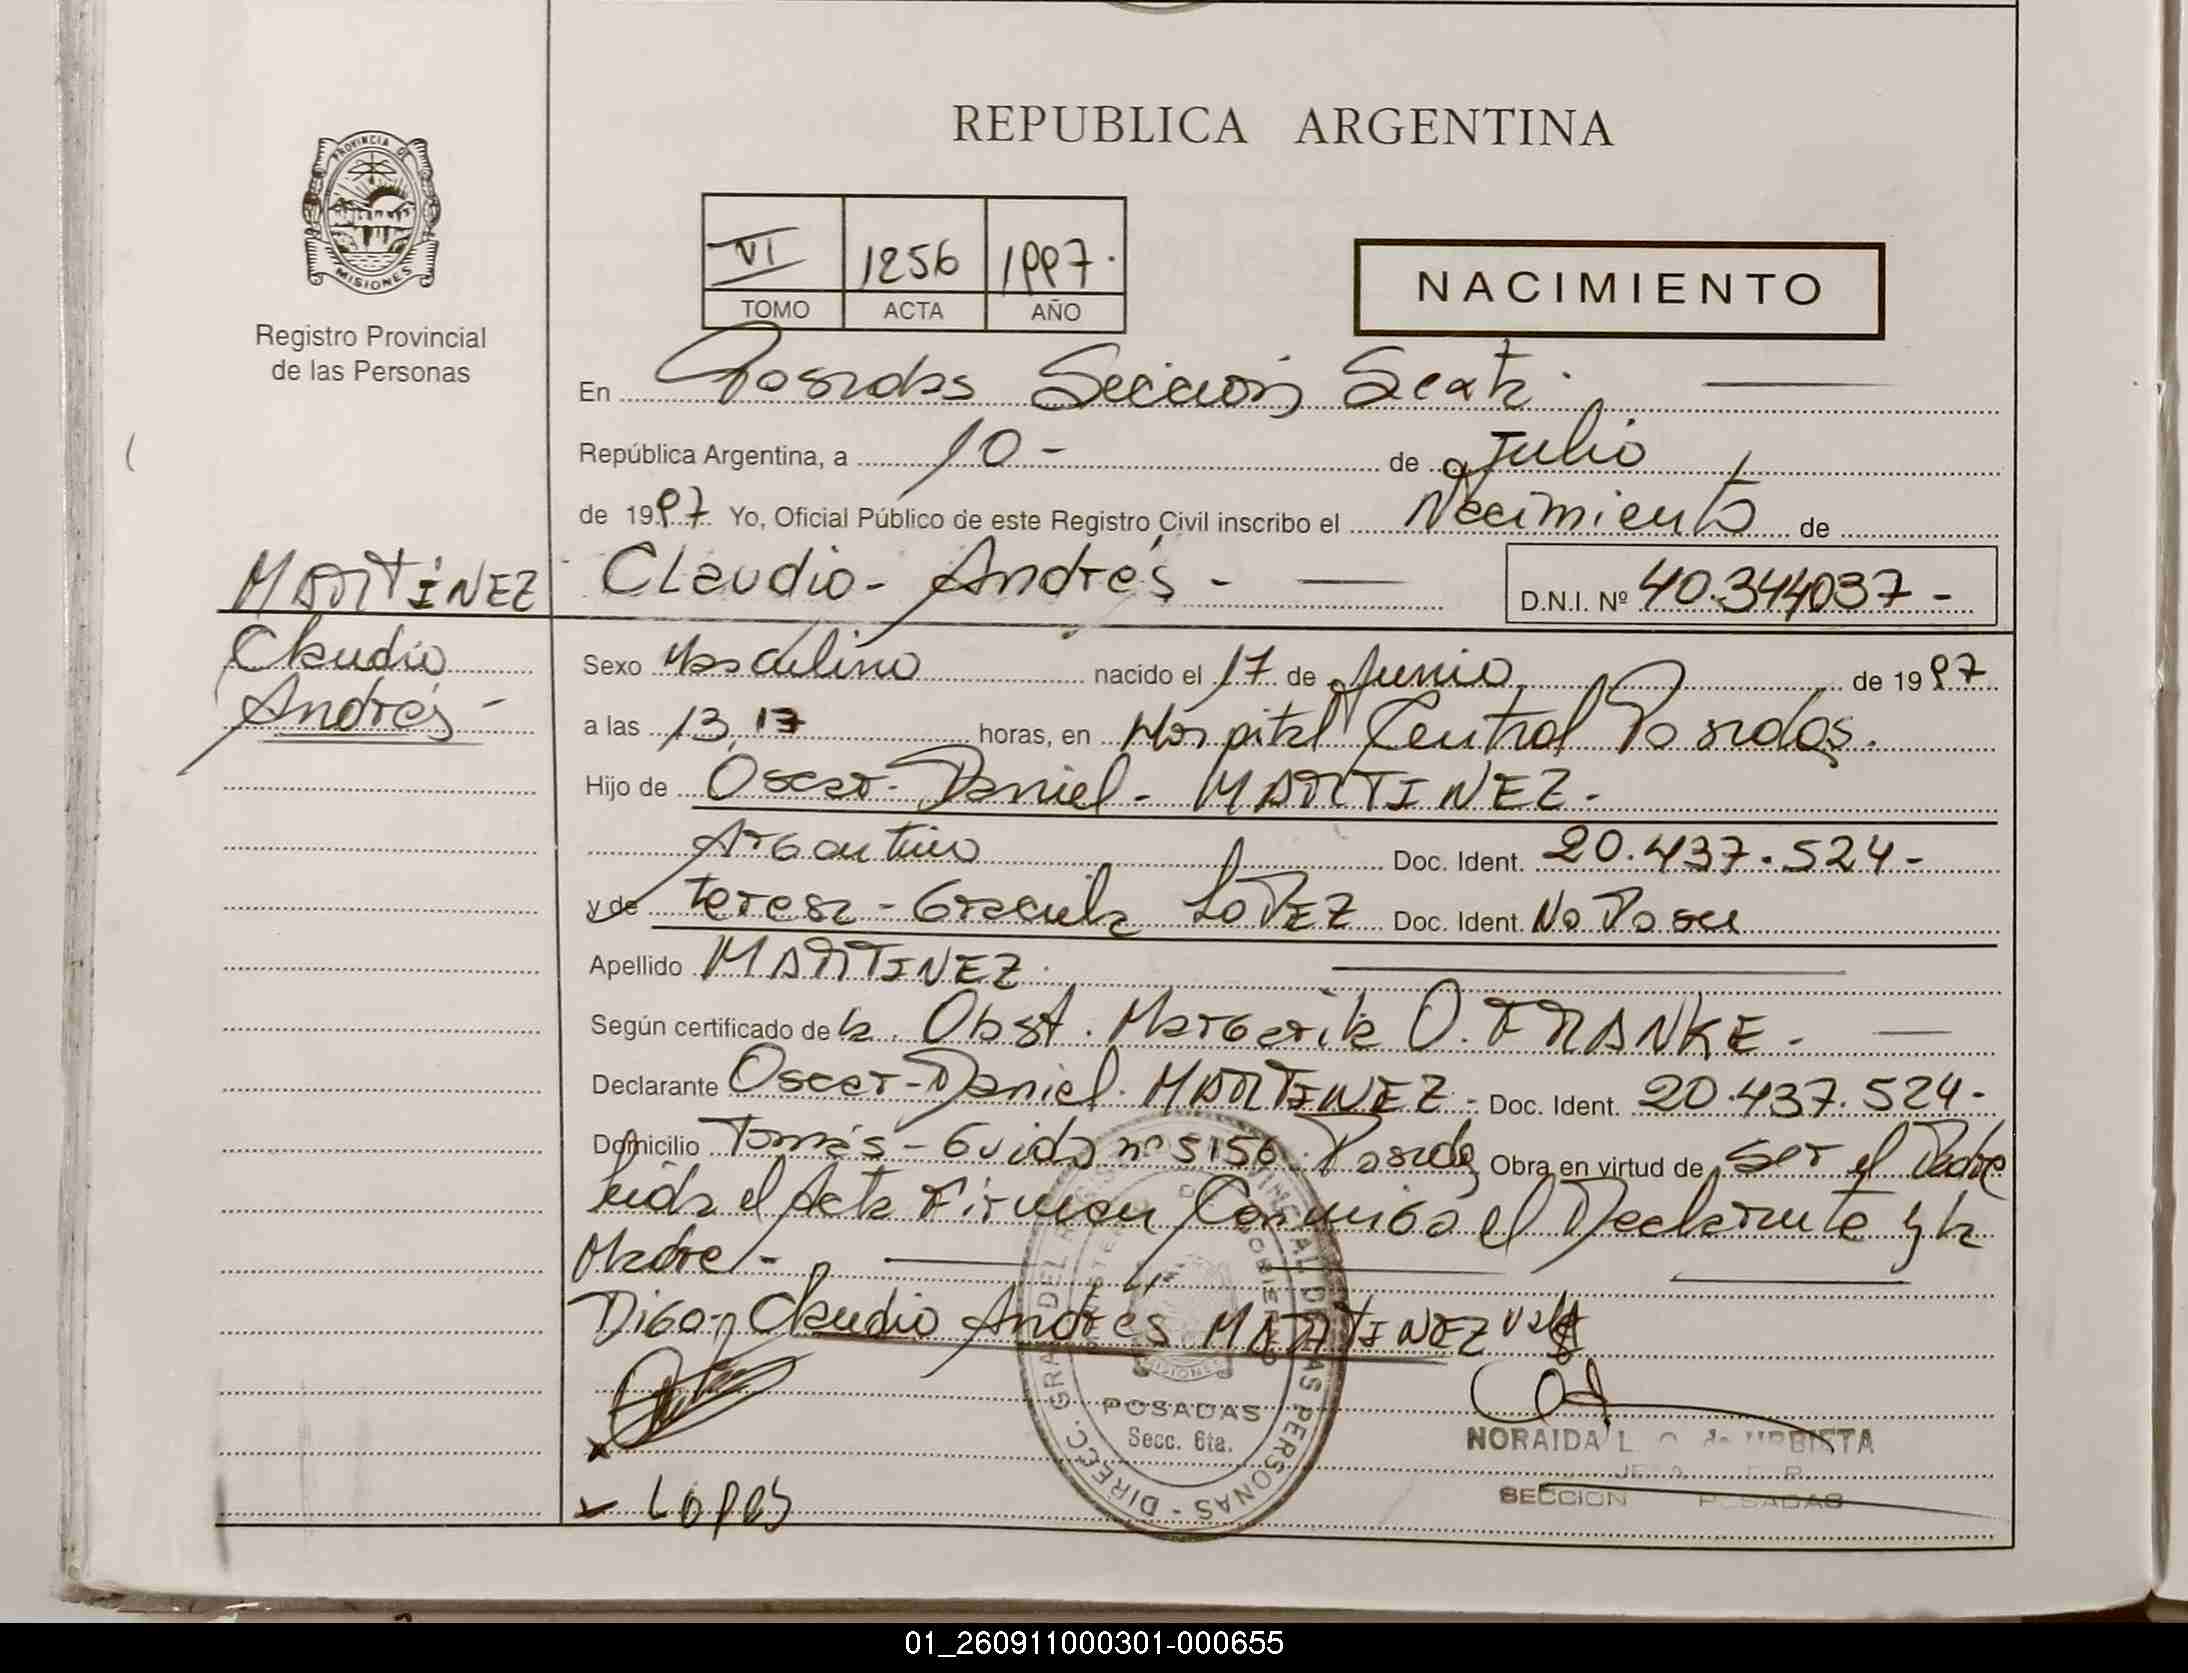 REPUBLICA ARGENTINA
PROVINCIA DE MISIONES
Registro Provincial
de las Personas
VI 1256 1997.
TOMO ACTA AÑO
NACIMIENTO
En Posadas Sección Sexta.
República Argentina, a 10 - de Julio
de 1997 Yo, Oficial Público de este Registro Civil inscribo el Nacimiento de
MARTÍNEZ Claudio - Andrés - D.N.I. Nº 40.344037 -
Claudio
Andrés -
Sexo Masculino nacido el 17 de Junio de 1997
a las 13,17 horas, en Hospital Central Posadas.
Hijo de Oscar - Daniel - MARTINEZ -
Argentino Doc. Ident. 20.437.524 -
y de Teresa - Graciela LOPEZ Doc. Ident. No Posee
Apellido MARTINEZ.
Según certificado de la Obst. Margarita O. FRANKE -
Declarante Oscar - Daniel MARTINEZ - Doc. Ident. 20.437.524 -
Domicilio Tomás - Guido nº 5156 Posadas Obra en virtud de ser el Padre
Leida el Acta Firman Conmigo el Declarante y la
Madre -
Digo Claudio Andrés MARTINEZ vale
POSADAS
Secc. 6ta.
DIRECC. GRAL DEL REGISTRO PROVINCIAL DE LAS PERSONAS
NORAIDA L. de URBIETA
SECCION POSADAS
Lopes
01_260911000301-000655